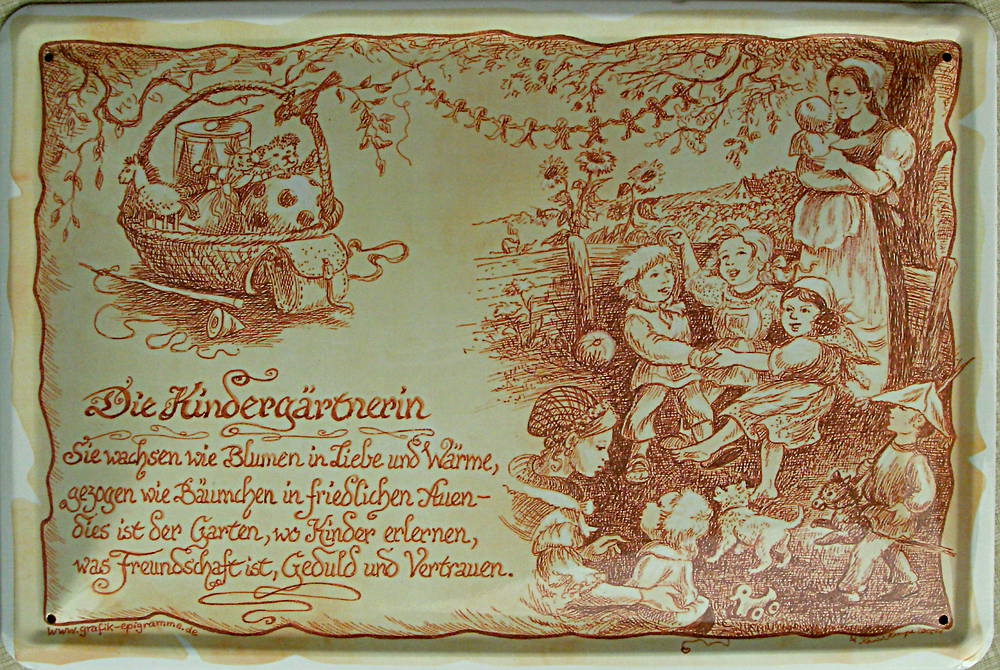 Die Kindergärtnerin
Sie wachsen wie Blumen in Liebe und Wärme,
gezogen wie Bäumchen in friedlichen Auen-
dies ist der Garten, wo Kinder erlernen,
was Freundschaft ist, Geduld und Vertrauen.
www.grafik-epigramme.de